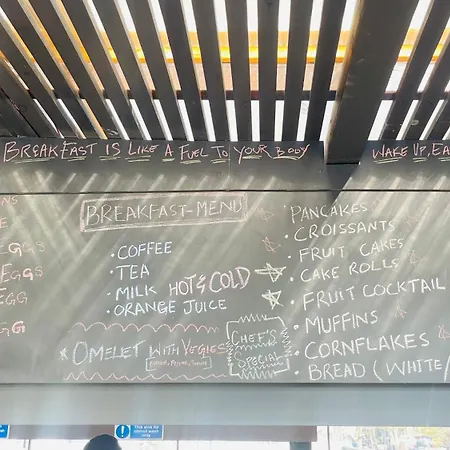 BREAKFAST IS LIKE A FUEL TO YOUR BODY
WAKE UP, EA
NS
E
EGGS
EGGS
EGG
GG
BREAKFAST-MENU
• COFFEE
• TEA
• MILK HOT & COLD
• ORANGE JUICE
OMELET WITH VEGIES
CHEF'S
SPECIAL
PANCAKES
• CROISSANTS
• FRUIT CAKES
• CAKE ROLLS
• FRUIT COCKTAIL
• MUFFINS
• CORNFLAKES
• BREAD (WHITE/